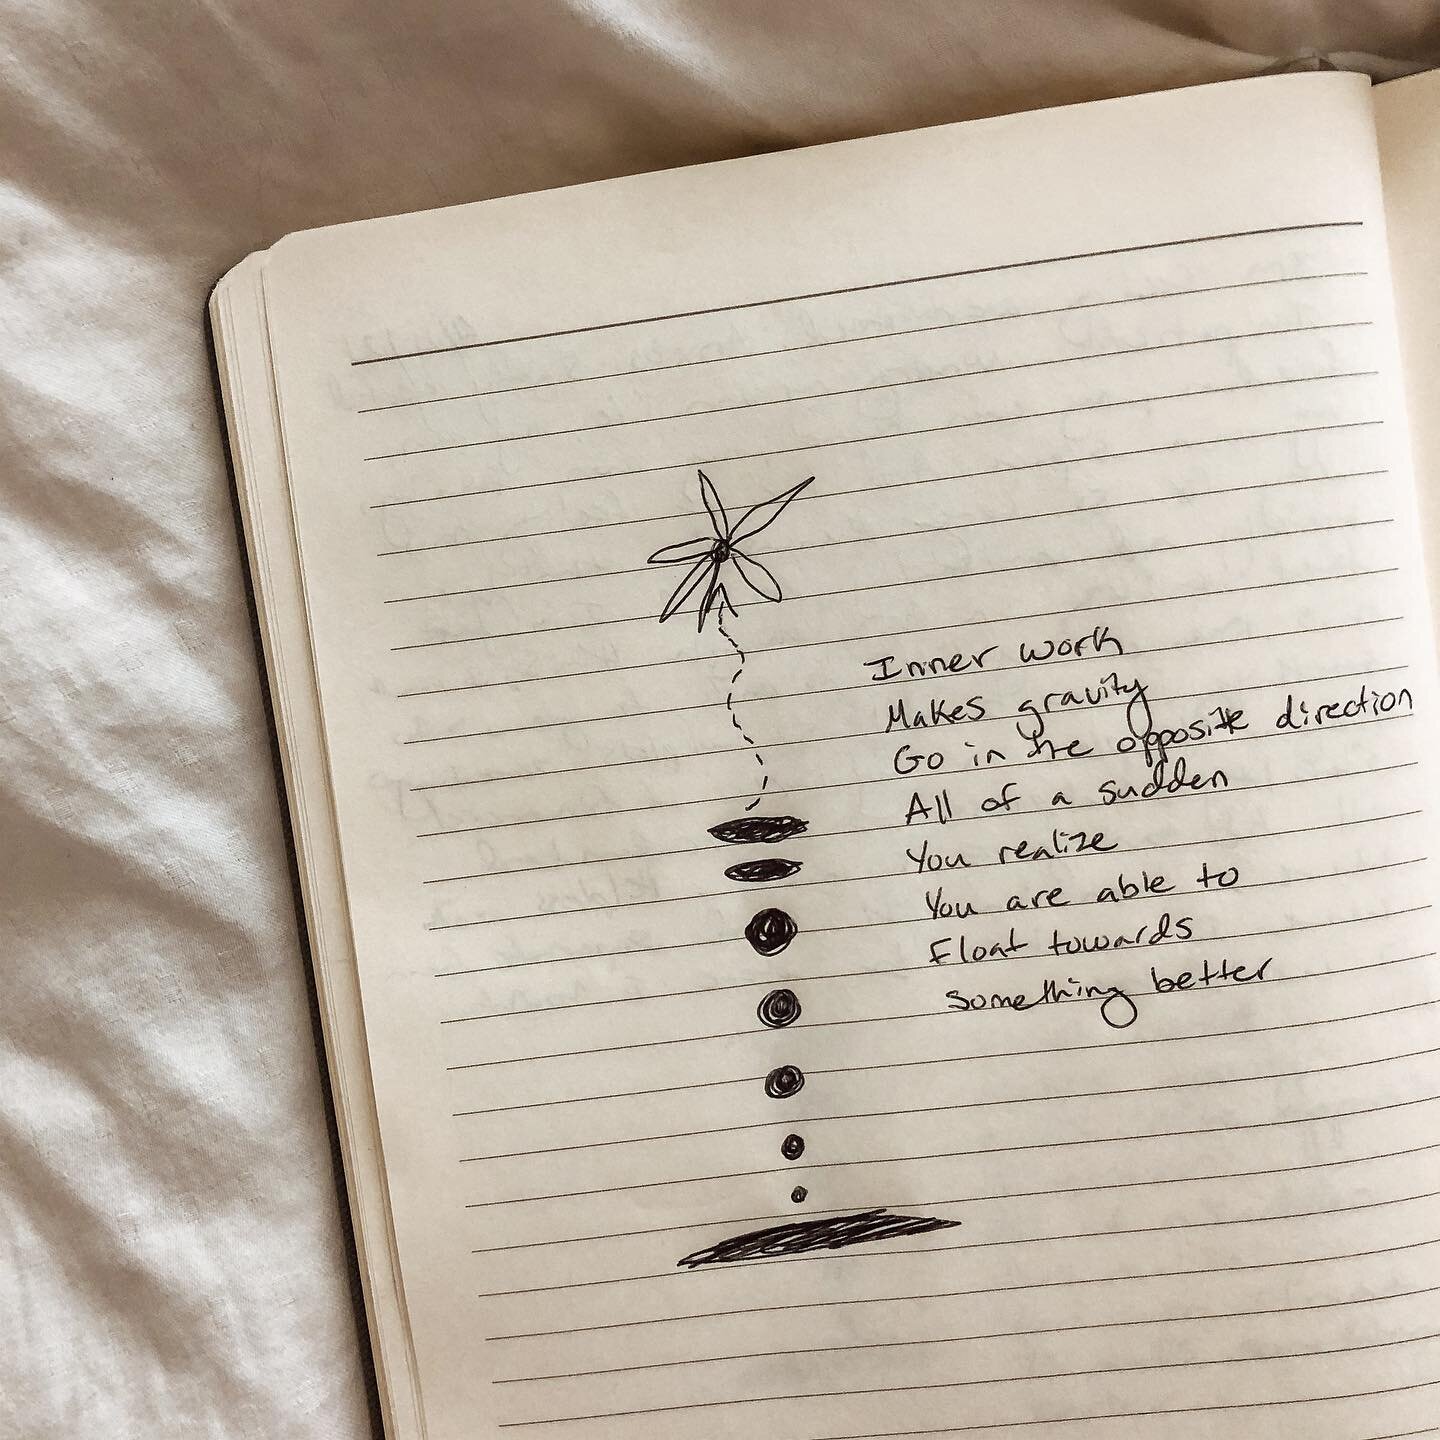 Inner work
Makes gravity
Go in the opposite direction
All of a sudden
You realize
You are able to
Float towards
Something better